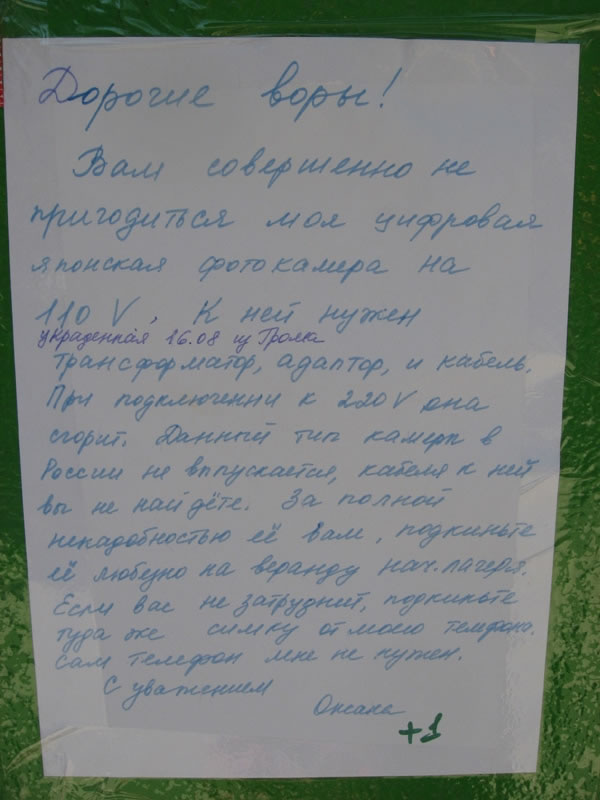 Дорогие воры!
Вам совершенно не
пригодиться моя цифровая
японская фотокамера на
110 V, К ней нужен
украденная 16.08 из
трансформатор, адаптор, и кабель.
При подключении к 220V она
сгорит. Данный тип камеры в
России не выпускается, кабеля к ней
вы не найдёте. За полной
ненадобностью её вам, подкиньте
её любезно на веранду нач. лагеря.
Если вас не затруднит, подкиньте
туда же симку от моего телефона.
Сам телефон мне не нужен.
С уважением
Оксана
+1